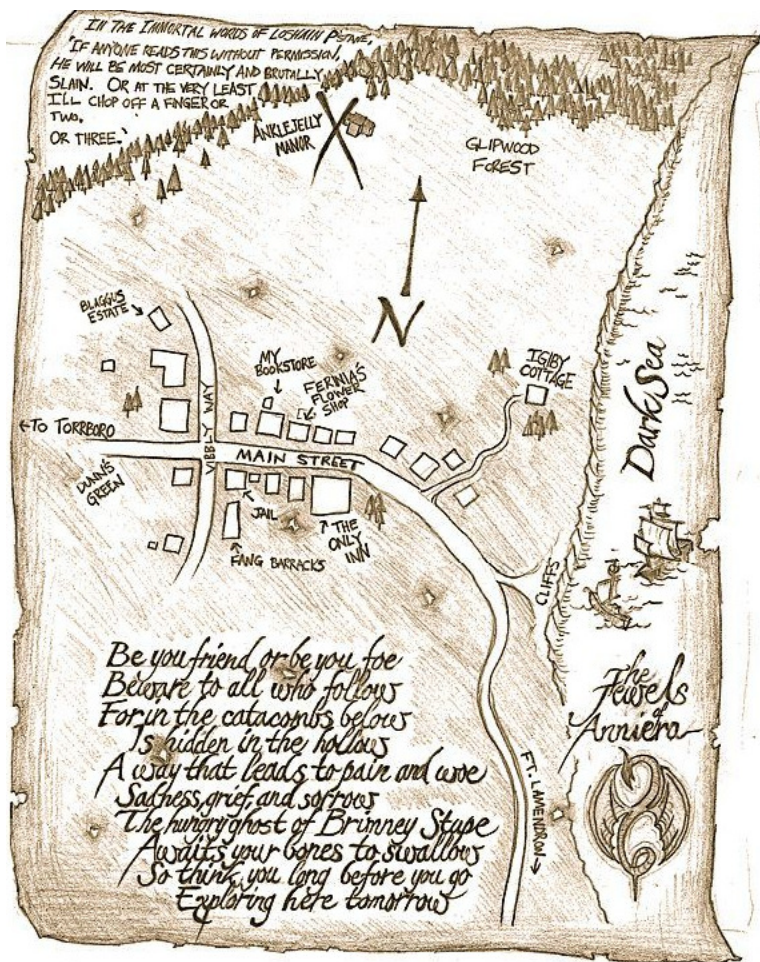 IN THE IMMORTAL WORDS OF LOSHAIN PSTANE,
'IF ANYONE READS THIS WITHOUT PERMISSION,
HE WILL BE MOST CERTAINLY AND BRUTALLY
SLAIN. OR AT THE VERY LEAST
I'LL CHOP OFF A FINGER OR
TWO.
OR THREE.'
ANKLEJELLY
MANOR
GLIPWOOD
FOREST
N
BLAGGUS
ESTATE
MY
BOOKSTORE
FERNIA'S
FLOWER
SHOP
IGIBY
COTTAGE
Dark Sea
TO TORRBORO
VIBBLY WAY
MAIN STREET
DUNN'S
GREEN
JAIL
THE
ONLY
INN
FANG BARRACKS
CLIFFS
Be you friend or be you foe
Beware to all who follow
For in the catacombs below
Is hidden in the hollow
A way that leads to pain and woe
Sadness, grief, and sorrow
The hungry ghost of Brimney Stupe
Awaits your bones to swallow
So think you long before you go
Exploring here tomorrow
The
Jewels
of
Anniera
FT. LAMENDRON